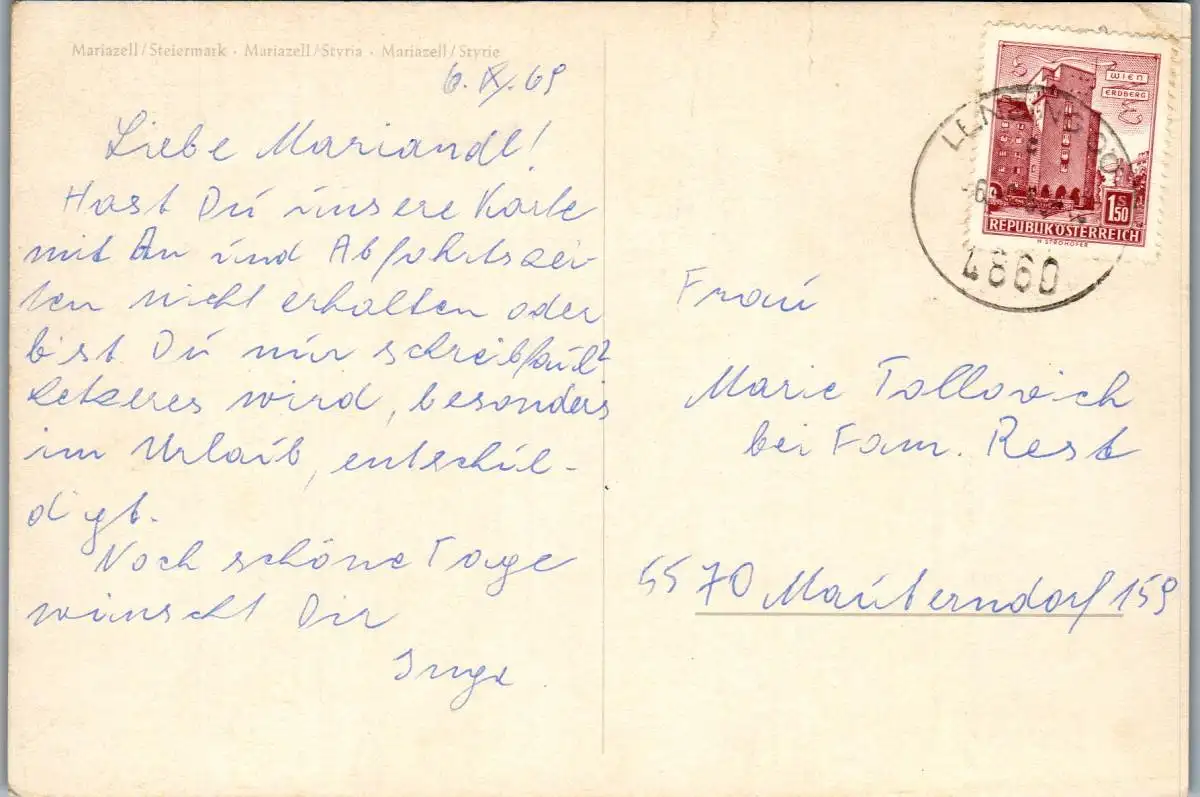 Mariazell/Steiermark · Mariazell/Styria · Mariazell/Styrie
Liebe Mariandl!
Hast Du unsere Karte
mit An und Abfahrtszei-
ten nicht erhalten oder
bist Du nur schreibfaul?
Letzeres wird, besonders
im Urlaub, entschul-
digt.
Noch schöne Tage
wünscht Dir
Inge
WIEN
ERDBERG
1.50
S
REPUBLIK ÖSTERREICH
H STROHOFER
4860
Frau
Marie Tollovich
bei Fam. Rest
5570 Mauterndorf 159